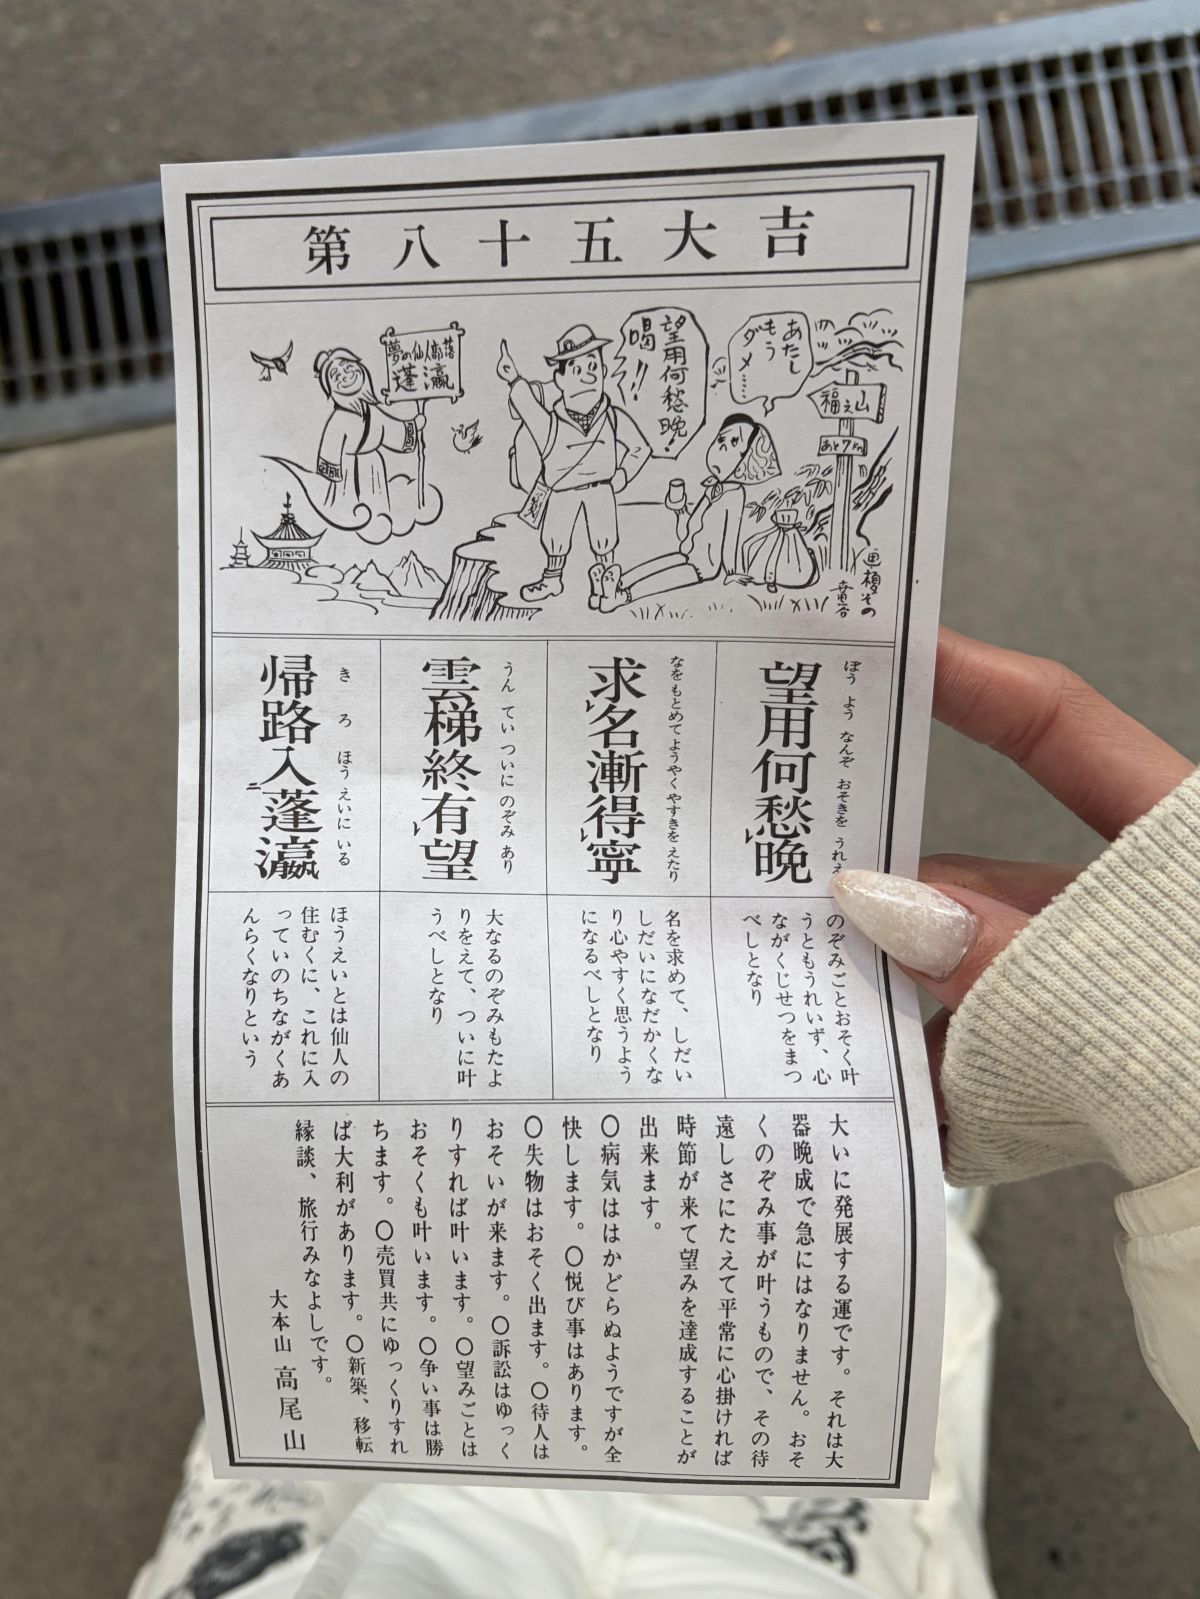 第八十五大吉
夢の仙人部落
蓬瀛
望用何愁晩!
喝!!
あたし
もう
ダメ……
福之山
あと7Km
ぼう よう なんぞ おそきを うれえ
望用何愁㆑晩
なを もとめて ようやくやすきを えたり
求㆑名漸得㆑寧
うん てい ついに のぞみ あり
雲梯終有㆑望
き ろ ほうえいに いる
帰路入㆓蓬瀛
のぞみごとおそく叶
うともうれいず、心
ながくじせつをまつ
べしとなり
名を求めて、しだい
しだいになだかくな
り心やすく思うよう
になるべしとなり
大なるのぞみもたよ
りをえて、ついに叶
うべしとなり
ほうえいとは仙人の
住むくに、これに入
っていのちながくあ
んらくなりという
大いに発展する運です。それは大
器晩成で急にはなりません。おそ
くのぞみ事が叶うもので、その待
遠しさにたえて平常に心掛ければ
時節が来て望みを達成することが
出来ます。
〇病気ははかどらぬようですが全
快します。〇悦び事はあります。
〇失物はおそく出ます。〇待人は
おそいが来ます。〇訴訟はゆっく
りすれば叶います。〇望みごとは
おそくも叶います。〇争い事は勝
ちます。〇売買共にゆっくりすれ
ば大利があります。〇新築、移転
縁談、旅行みなよしです。
大本山 高尾山